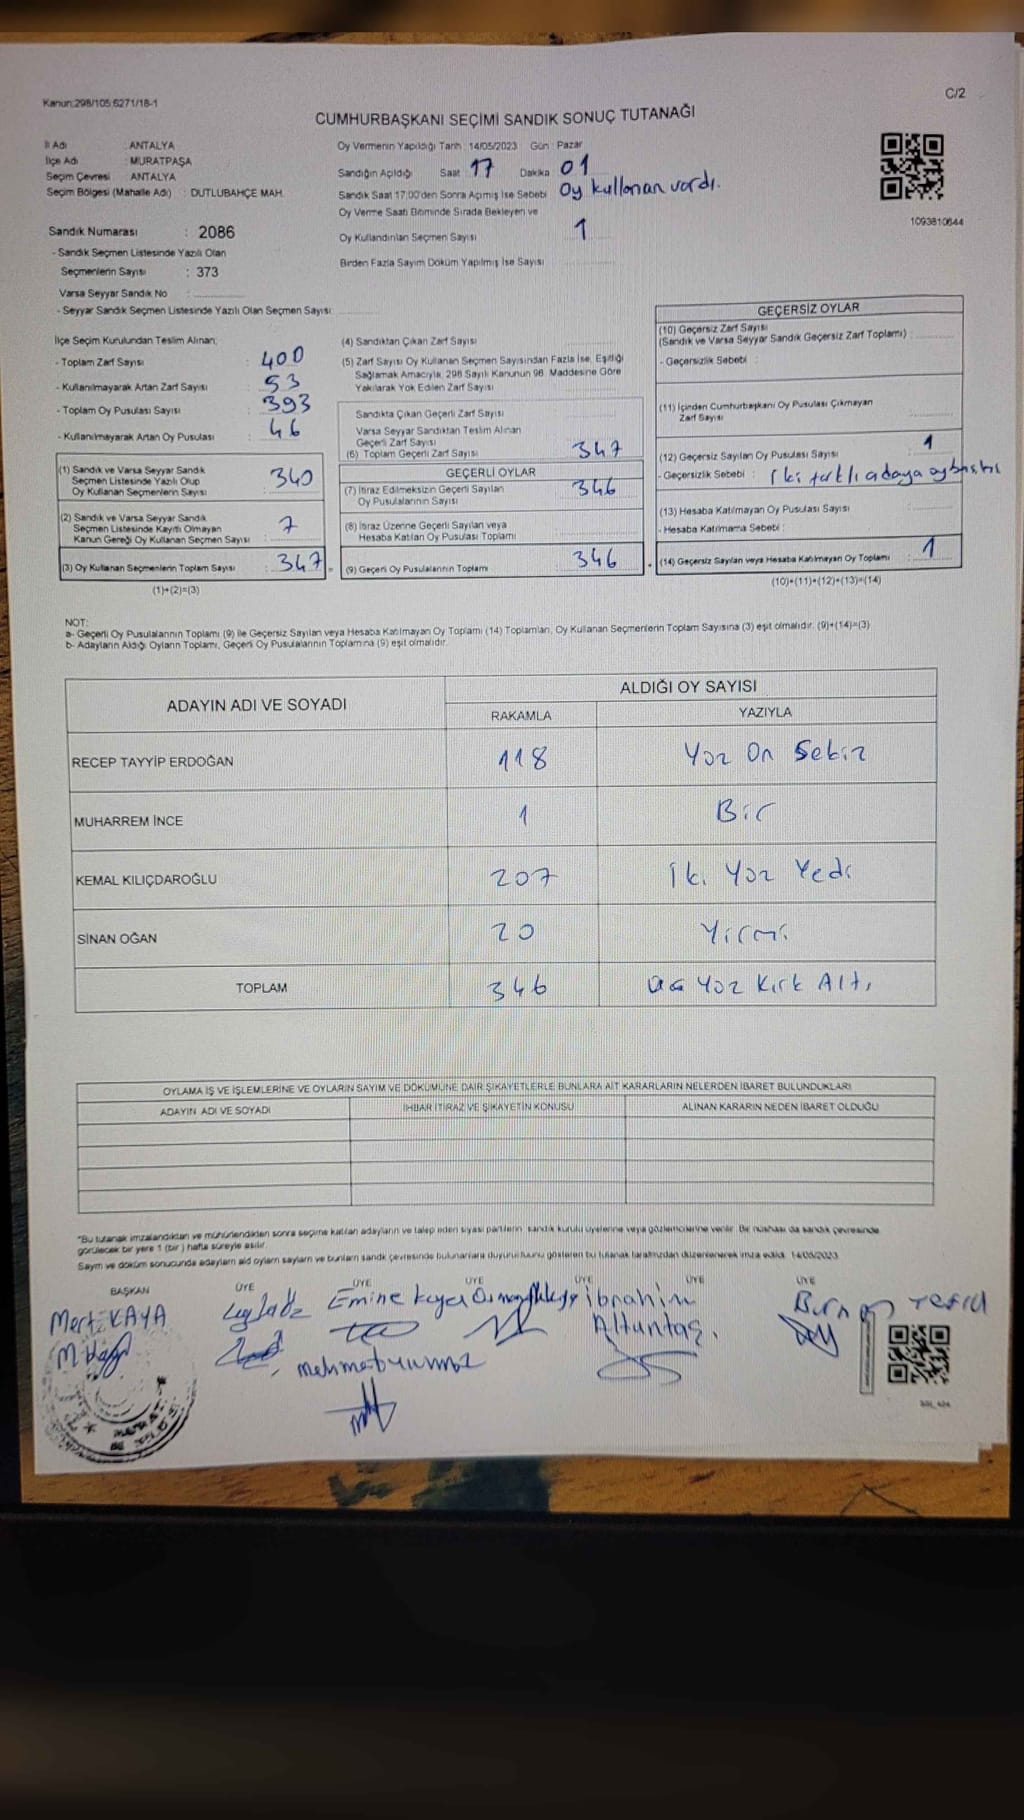 Kanun:298/105;6271/18-1
C/2
CUMHURBAŞKANI SEÇİMİ SANDIK SONUÇ TUTANAĞI
İl Adı : ANTALYA
İlçe Adı : MURATPAŞA
Seçim Çevresi : ANTALYA
Seçim Bölgesi (Mahalle Adı) : DUTLUBAHÇE MAH.
Sandık Numarası : 2086
- Sandık Seçmen Listesinde Yazılı Olan
Seçmenlerin Sayısı : 373
Varsa Seyyar Sandık No :
- Seyyar Sandık Seçmen Listesinde Yazılı Olan Seçmen Sayısı
Oy Vermenin Yapıldığı Tarih : 14/05/2023 Gün : Pazar
Sandığın Açıldığı Saat : 17 Dakika : 01
Sandık Saat 17:00'den Sonra Açılmış İse Sebebi : Oy kullanan vardı.
Oy Verme Saati Bitiminde Sırada Bekleyen ve
Oy Kullandırılan Seçmen Sayısı : 1
Birden Fazla Sayım Döküm Yapılmış İse Sayısı
1093810644
İlçe Seçim Kurulundan Teslim Alınan;
- Toplam Zarf Sayısı : 400
- Kullanılmayarak Artan Zarf Sayısı : 53
- Toplam Oy Pusulası Sayısı : 393
- Kullanılmayarak Artan Oy Pusulası : 46
(1) Sandık ve Varsa Seyyar Sandık
Seçmen Listesinde Yazılı Olup
Oy Kullanan Seçmenlerin Sayısı : 340
(2) Sandık ve Varsa Seyyar Sandık
Seçmen Listesinde Kayıtlı Olmayan
Kanun Gereği Oy Kullanan Seçmen Sayısı : 7
(3) Oy Kullanan Seçmenlerin Toplam Sayısı : 347
(1)+(2)=(3)
(4) Sandıktan Çıkan Zarf Sayısı
(5) Zarf Sayısı Oy Kullanan Seçmen Sayısından Fazla İse, Eşitliği
Sağlamak Amacıyla, 298 Sayılı Kanunun 98. Maddesine Göre
Yakılarak Yok Edilen Zarf Sayısı
Sandıkta Çıkan Geçerli Zarf Sayısı
Varsa Seyyar Sandıktan Teslim Alınan
Geçerli Zarf Sayısı
(6) Toplam Geçerli Zarf Sayısı 347
GEÇERLİ OYLAR
(7) İtiraz Edilmeksizin Geçerli Sayılan
Oy Pusulalarının Sayısı 346
(8) İtiraz Üzerine Geçerli Sayılan veya
Hesaba Katılan Oy Pusulası Toplamı
(9) Geçerli Oy Pusulalarının Toplamı 346
GEÇERSİZ OYLAR
(10) Geçersiz Zarf Sayısı
(Sandık ve Varsa Seyyar Sandık Geçersiz Zarf Toplamı) :
- Geçersizlik Sebebi :
(11) İçinden Cumhurbaşkanı Oy Pusulası Çıkmayan
Zarf Sayısı
(12) Geçersiz Sayılan Oy Pusulası Sayısı : 1
- Geçersizlik Sebebi : İki farklı adaya oy basılmış
(13) Hesaba Katılmayan Oy Pusulası Sayısı
- Hesaba Katılmama Sebebi :
(14) Geçersiz Sayılan veya Hesaba Katılmayan Oy Toplamı : 1
(10)+(11)+(12)+(13)=(14)
NOT:
a- Geçerli Oy Pusulalarının Toplamı (9) ile Geçersiz Sayılan veya Hesaba Katılmayan Oy Toplamı (14) Toplamları, Oy Kullanan Seçmenlerin Toplam Sayısına (3) eşit olmalıdır. (9)+(14)=(3)
b- Adayların Aldığı Oyların Toplamı, Geçerli Oy Pusulalarının Toplamına (9) eşit olmalıdır.
ADAYIN ADI VE SOYADI
ALDIĞI OY SAYISI
RAKAMLA YAZIYLA
RECEP TAYYİP ERDOĞAN 118 Yüz On Sekiz
MUHARREM İNCE 1 Bir
KEMAL KILIÇDAROĞLU 207 İki Yüz Yedi
SİNAN OĞAN 20 Yirmi
TOPLAM 346 Üç Yüz Kırk Altı
OYLAMA İŞ VE İŞLEMLERİNE VE OYLARIN SAYIM VE DÖKÜMÜNE DAİR ŞİKAYETLERLE BUNLARA AİT KARARLARIN NELERDEN İBARET BULUNDUKLARI
ADAYIN ADI VE SOYADI İHBAR İTİRAZ VE ŞİKAYETİN KONUSU ALINAN KARARIN NEDEN İBARET OLDUĞU
*Bu tutanak imzalandıktan ve mühürlendikten sonra seçime katılan adayların ve talep eden siyasi partilerin sandık kurulu üyelerine veya gözlemcilerine verilir. Bir nüshası da sandık çevresinde
görülecek bir yere 1 (bir) hafta süreyle asılır.
Sayım ve döküm sonucunda adayların
BAŞKAN ÜYE ÜYE ÜYE ÜYE ÜYE ÜYE
Mert KAYA Emine İbrahim
Altuntaş.
Mehmet